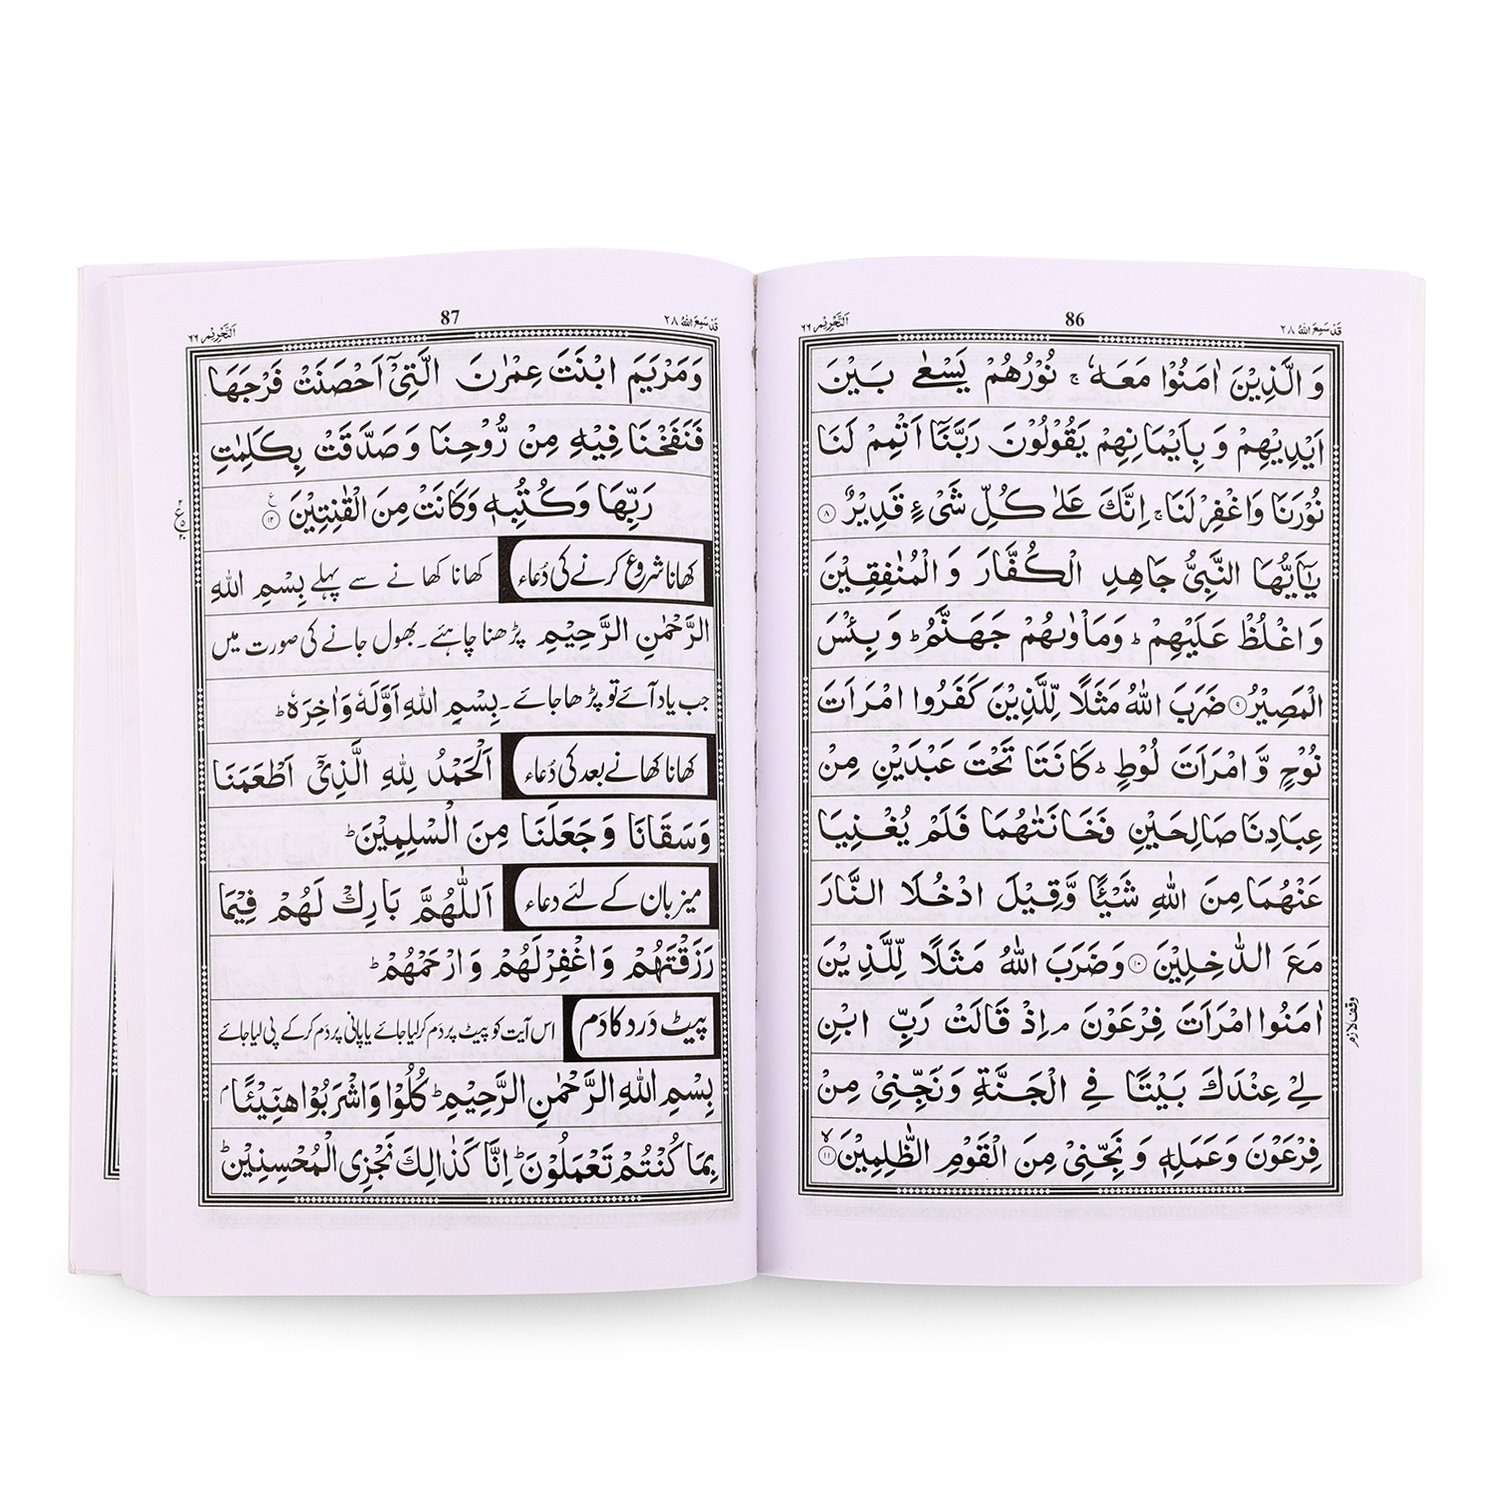 قَدْ سَمِعَ اللهُ ٢٨
86
اَلتَّحْرِيْم ٦٦
وَ الَّذِيْنَ اٰمَنُوْا مَعَهٗ ۚ نُوْرُهُمْ يَسْعٰى بَيْنَ
اَيْدِيْهِمْ وَ بِاَيْمَانِهِمْ يَقُوْلُوْنَ رَبَّنَآ اَتْمِمْ لَنَا
نُوْرَنَا وَاغْفِرْ لَنَا ۚ اِنَّكَ عَلٰى كُلِّ شَىْءٍ قَدِيْرٌ ٨
يٰۤاَيُّهَا النَّبِىُّ جَاهِدِ الْكُفَّارَ وَ الْمُنٰفِقِيْنَ
وَ اغْلُظْ عَلَيْهِمْ ؕ وَمَاْوٰىهُمْ جَهَنَّمُ ؕ وَ بِئْسَ
الْمَصِيْرُ ٩ ضَرَبَ اللهُ مَثَلًا لِّلَّذِيْنَ كَفَرُوا امْرَاَتَ
نُوْحٍ وَّ امْرَاَتَ لُوْطٍ ؕ كَانَتَا تَحْتَ عَبْدَيْنِ مِنْ
عِبَادِنَا صَالِحَيْنِ فَخَانَتٰهُمَا فَلَمْ يُغْنِيَا
عَنْهُمَا مِنَ اللهِ شَيْـًٔا وَّقِيْلَ ادْخُلَا النَّارَ
مَعَ الدّٰخِلِيْنَ ١٠ وَضَرَبَ اللهُ مَثَلًا لِّلَّذِيْنَ
اٰمَنُوا امْرَاَتَ فِرْعَوْنَ ۘ اِذْ قَالَتْ رَبِّ ابْنِ
وقف لازم
لِيْ عِنْدَكَ بَيْتًا فِي الْجَنَّةِ وَ نَجِّنِيْ مِنْ
فِرْعَوْنَ وَ عَمَلِهٖ وَ نَجِّنِيْ مِنَ الْقَوْمِ الظّٰلِمِيْنَ ۙ ١١
قَدْ سَمِعَ اللهُ ٢٨
87
اَلتَّحْرِيْم ٦٦
وَمَرْيَمَ ابْنَتَ عِمْرٰنَ الَّتِيْٓ اَحْصَنَتْ فَرْجَهَا
فَنَفَخْنَا فِيْهِ مِنْ رُّوْحِنَا وَ صَدَّقَتْ بِكَلِمٰتِ
رَبِّهَا وَكُتُبِهٖ وَكَانَتْ مِنَ الْقٰنِتِيْنَ ١٢ ع
کھانا شروع کرنے کی دُعاء کھانا کھانے سے پہلے بِسْمِ اللهِ
الرَّحْمٰنِ الرَّحِيْمِ پڑھنا چاہئے۔ بھول جانے کی صورت میں
جب یاد آئے تو پڑھا جائے۔ بِسْمِ اللهِ اَوَّلَهٗ وَاٰخِرَهٗ ؕ
کھانا کھانے بعد کی دُعاء اَلْحَمْدُ لِلّٰهِ الَّذِيْٓ اَطْعَمَنَا
وَسَقَانَا وَ جَعَلَنَا مِنَ الْسْلِمِيْنَ ؕ
میزبان کے لئے دعاء اَللّٰهُمَّ بَارِكْ لَهُمْ فِيْمَا
رَزَقْتَهُمْ وَاغْفِرْلَهُمْ وَارْحَمْهُمْ ؕ
پیٹ دَرد کا دَم اس آیت کو پیٹ پر دَم کر لیا جائے یا پانی پر دَم کر کے پی لیا جائے
بِسْمِ اللهِ الرَّحْمٰنِ الرَّحِيْمِ ؕ كُلُوْا وَاشْرَبُوْا هَنِيْٓئًا ۢ
بِمَا كُنْتُمْ تَعْمَلُوْنَ ؕ اِنَّا كَذٰالِكَ نَجْزِى الْمُحْسِنِيْنَ ؕ